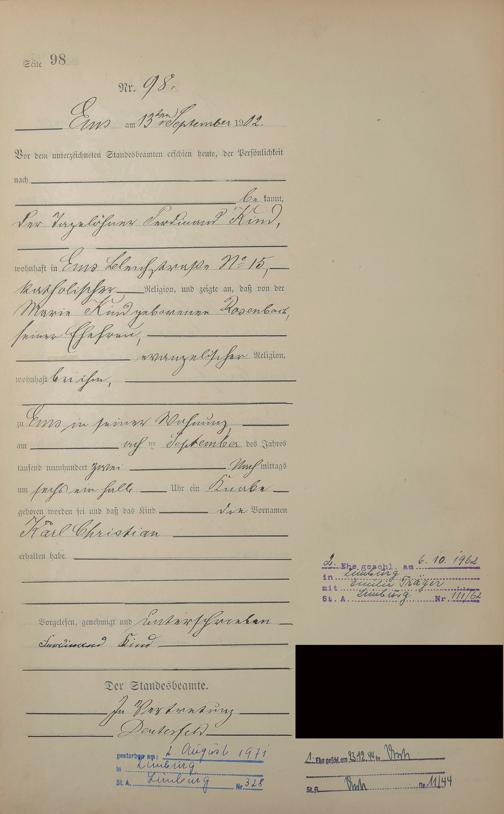 Seite 98
Nr. 98.
Ems am 13ten September 1902.
Vor dem unterzeichneten Standesbeamten erschien heute, der Persönlichkeit
nach
be kannt,
der Tagelöhner Ferdinand Kind,
wohnhaft in Ems Bleichstraße No 15,
katholischer Religion, und zeigte an, daß von der
Marie Kind geborenen Rosenbach,
seiner Ehefrau,
evangelischer Religion,
wohnhaft bei ihm,
zu Ems in seiner Wohnung
am acht ten September des Jahres
tausend neunhundert zwei Nach mittags
um sechs ein halb Uhr ein Knabe
geboren worden sei und daß das Kind die Vornamen
Karl Christian
erhalten habe.
Vorgelesen, genehmigt und unterschrieben
Ferdinand Kind
Der Standesbeamte.
In Vertretung
gestorben am: 2 August 1971
in Limburg
St. A. Limburg Nr 328
2. Ehe geschl. am 6.10.1962
in Limburg
mit Emilie Träger
St. A. Limburg Nr. 111/62
1. Ehe geschl. am 23.12.44 in
St. A. Nr. 11/44